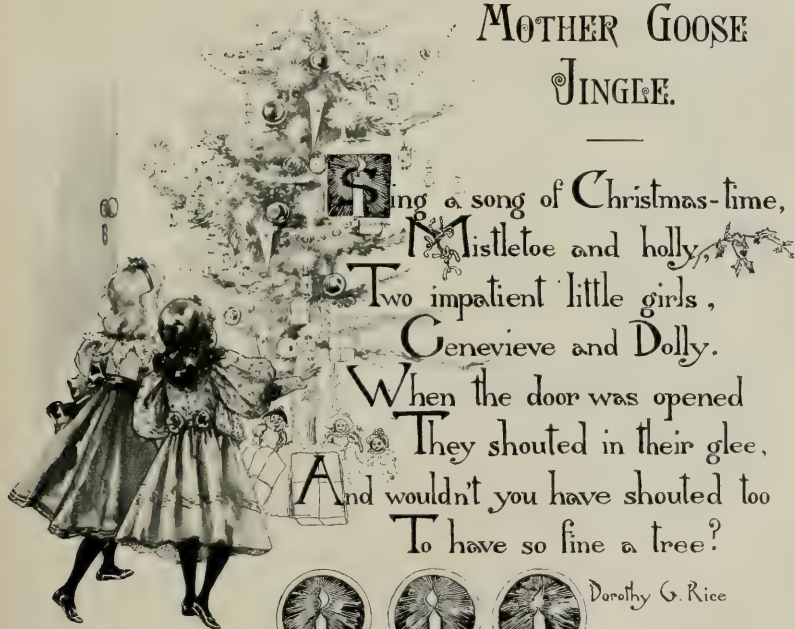 MOTHER GOOSE
JINGLE.
Sing a song of Christmas-time,
Mistletoe and holly,
Two impatient little girls,
Genevieve and Dolly.
When the door was opened
They shouted in their glee,
And wouldn't you have shouted too
To have so fine a tree?
Dorothy G. Rice